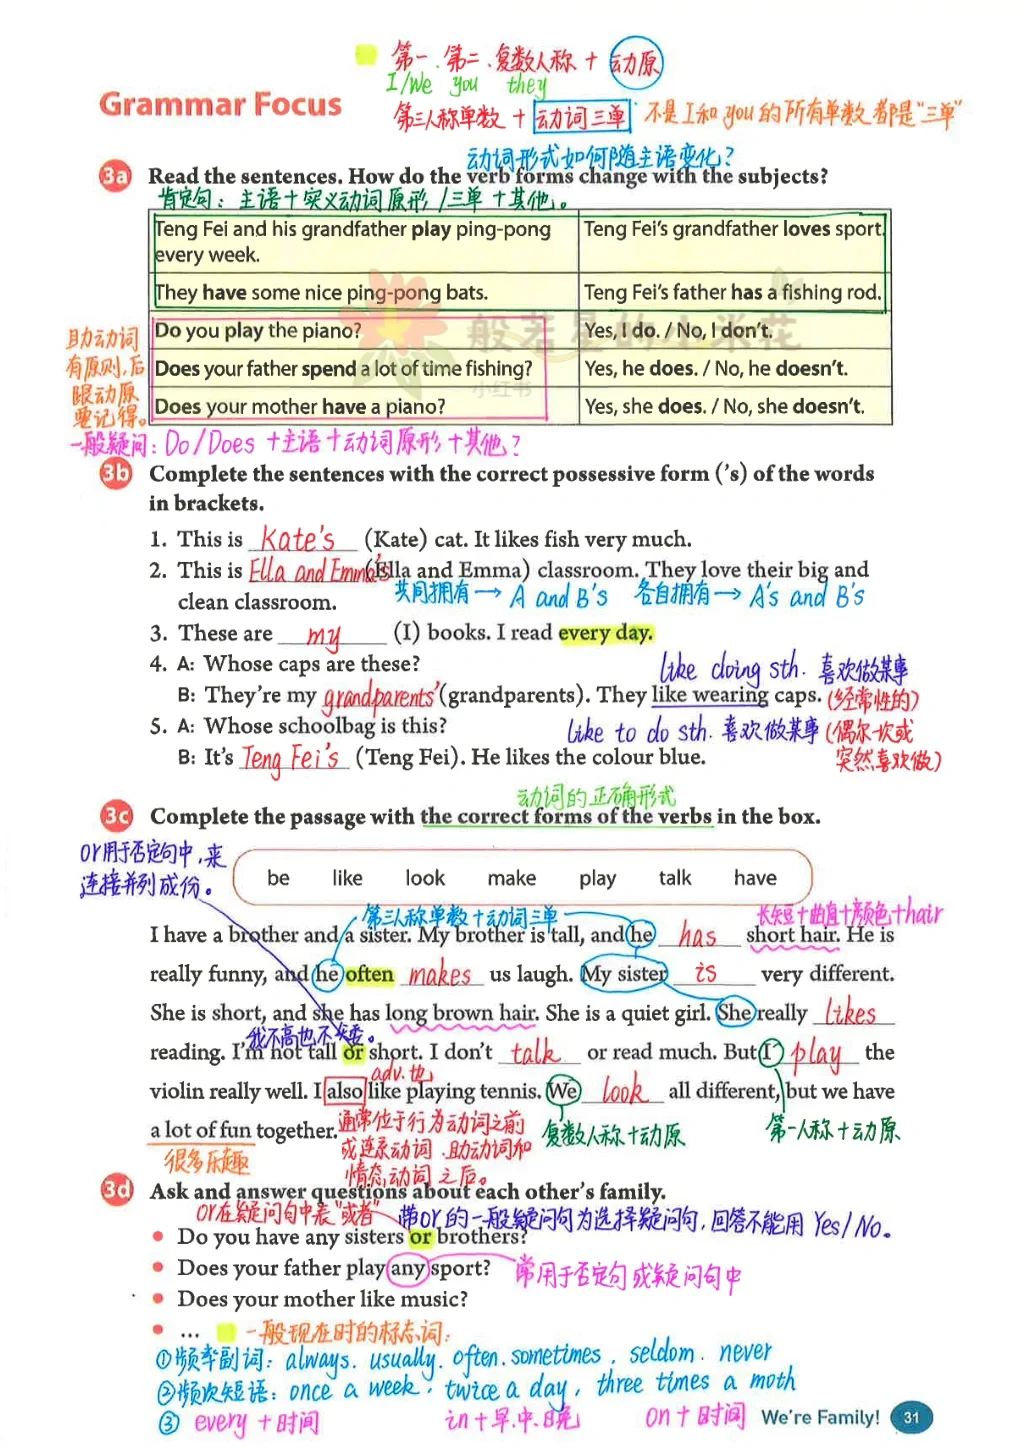 第一、第二、复数人称 + 动原
I/We you they
Grammar Focus
第三人称单数 + 动词三单 不是I和you的所有单数都是"三单"
动词形式如何随主语变化?
3a Read the sentences. How do the verb forms change with the subjects?
肯定句: 主语+实义动词原形/三单+其他。
Teng Fei and his grandfather play ping-pong every week. Teng Fei's grandfather loves sport.
They have some nice ping-pong bats. Teng Fei's father has a fishing rod.
Do you play the piano? Yes, I do. / No, I don't.
Does your father spend a lot of time fishing? Yes, he does. / No, he doesn't.
Does your mother have a piano? Yes, she does. / No, she doesn't.
般若星的小米花
小红书
助动词
有原则,后
跟动原
要记得。
一般疑问: Do/Does +主语+动词原形+其他?
3b Complete the sentences with the correct possessive form ('s) of the words
in brackets.
1. This is Kate's (Kate) cat. It likes fish very much.
2. This is Ella and Emma's (Ella and Emma) classroom. They love their big and
clean classroom. 共同拥有→ A and B's 各自拥有→ A's and B's
3. These are my (I) books. I read every day.
4. A: Whose caps are these?
like doing sth. 喜欢做某事
B: They're my grandparents' (grandparents). They like wearing caps. (经常性的)
5. A: Whose schoolbag is this? like to do sth. 喜欢做某事 (偶尔一次或
B: It's Teng Fei's (Teng Fei). He likes the colour blue. 突然喜欢做)
动词的正确形式
3c Complete the passage with the correct forms of the verbs in the box.
or用于否定句中,来
连接并列成份。
be like look make play talk have
第三人称单数+动词三单 长短+曲直+颜色+hair
I have a brother and a sister. My brother is tall, and he has short hair. He is
really funny, and he often makes us laugh. My sister is very different.
She is short, and she has long brown hair. She is a quiet girl. She really likes
我不高也不矮。
reading. I'm not tall or short. I don't talk or read much. But I play the
adv. 也
violin really well. I also like playing tennis. We look all different, but we have
a lot of fun together.
很多乐趣
通常位于行为动词之前
或连系动词、助动词和
情态动词之后。
复数人称+动原
第一人称+动原
3d Ask and answer questions about each other's family.
or在疑问句中表"或者" 带or的一般疑问句为选择疑问句,回答不能用Yes/No。
• Do you have any sisters or brothers?
• Does your father play any sport? 常用于否定句或疑问句中
• Does your mother like music?
• ... 一般现在时的标志词:
①频率副词: always. usually. often. sometimes. seldom. never
②频次短语: once a week, twice a day, three times a moth
③ every + 时间 in+早.中.晚 on+时间
We're Family! 31